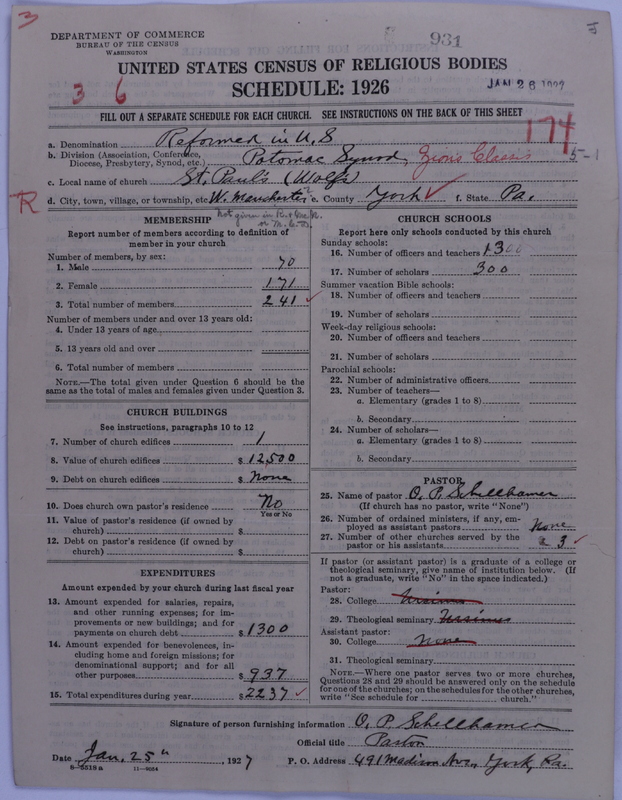 3
DEPARTMENT OF COMMERCE
BUREAU OF THE CENSUS
WASHINGTON
931
UNITED STATES CENSUS OF RELIGIOUS BODIES
3 6
SCHEDULE: 1926
JAN 26 1927
FILL OUT A SEPARATE SCHEDULE FOR EACH CHURCH. SEE INSTRUCTIONS ON THE BACK OF THIS SHEET
174
a. Denomination Reformed in U.S
b. Division (Association, Conference, Diocese, Presbytery, Synod, etc.) Potomac Synod, Zion's Classis 5-1
c. Local name of church St. Paul's (Wolf's)
R d. City, town, village, or township, etc. W. Manchester e. County York f. State Pa.
MEMBERSHIP
Report number of members according to definition of
member in your church
Number of members, by sex:
1. Male 70
2. Female 171
3. Total number of members 241
Number of members under and over 13 years old:
4. Under 13 years of age
5. 13 years old and over
6. Total number of members
NOTE.—The total given under Question 6 should be the
same as the total of males and females given under Question 3.
CHURCH BUILDINGS
See instructions, paragraphs 10 to 12
7. Number of church edifices 1
8. Value of church edifices $ 12,500
9. Debt on church edifices $ None
10. Does church own pastor's residence No
Yes or No
11. Value of pastor's residence (if owned by
church) $
12. Debt on pastor's residence (if owned by
church) $
EXPENDITURES
Amount expended by your church during last fiscal year
13. Amount expended for salaries, repairs,
and other running expenses; for im-
provements or new buildings; and for
payments on church debt $ 1300
14. Amount expended for benevolences, in-
cluding home and foreign missions; for
denominational support; and for all
other purposes $ 937
15. Total expenditures during year $ 2237
CHURCH SCHOOLS
Report here only schools conducted by this church
Sunday schools:
16. Number of officers and teachers
17. Number of scholars 300
Summer vacation Bible schools:
18. Number of officers and teachers
19. Number of scholars
Week-day religious schools:
20. Number of officers and teachers
21. Number of scholars
Parochial schools:
22. Number of administrative officers
23. Number of teachers—
a. Elementary (grades 1 to 8)
b. Secondary
24. Number of scholars—
a. Elementary (grades 1 to 8)
b. Secondary
PASTOR
25. Name of pastor O. P. Schellhamer
(If church has no pastor, write "None")
26. Number of ordained ministers, if any, em-
ployed as assistant pastors None
27. Number of other churches served by the
pastor or his assistants 3
If pastor (or assistant pastor) is a graduate of a college or
theological seminary, give name of institution below. (If
not a graduate, write "No" in the space indicated.)
Pastor:
28. College Ursinus
29. Theological seminary Ursinus
Assistant pastor:
30. College None
31. Theological seminary
NOTE.—Where one pastor serves two or more churches,
Questions 28 and 29 should be answered only on the schedule
for one of the churches; on the schedules for the other churches,
write "See schedule for church."
Signature of person furnishing information O. P. Schellhamer
Official title Pastor
Date Jan. 25th, 1927 P. O. Address 491 Madison Ave., York, Pa.
8-5518 a 11-9054